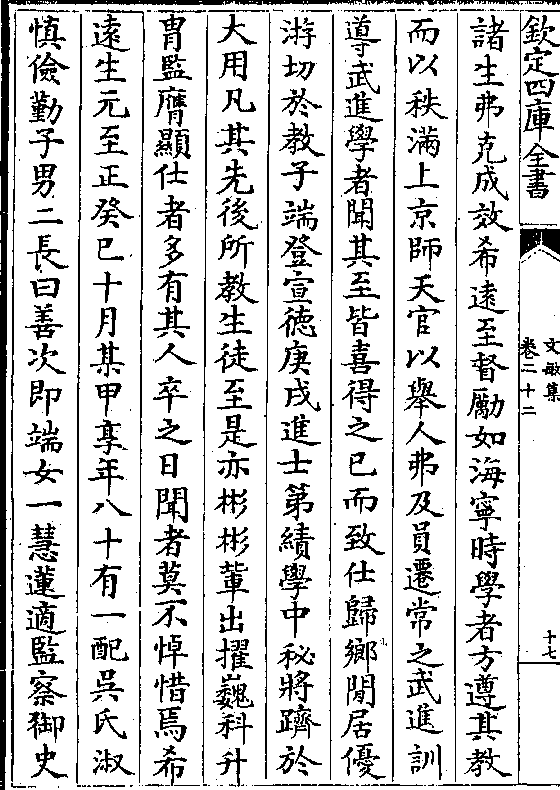 欽定四庫全書
文敏集
卷二十二
十七
諸生弗克成效希逺至督勵如海寧時學者方遵其教
而以秩滿上京師天官以舉人弗及員遷常之武進訓
導武進學者聞其至皆喜得之已而致仕歸鄉閒居優
游切於教子端登宣徳庚戌進士第績學中秘將躋於
大用凡其先後所教生徒至是亦彬彬軰出擢巍科升
胄監膺顯仕者多有其人卒之日聞者莫不悼惜焉希
逺生元至正癸巳十月某甲享年八十有一配吳氏淑
慎儉勤子男二長曰善次即端女一慧蓮適監察御史